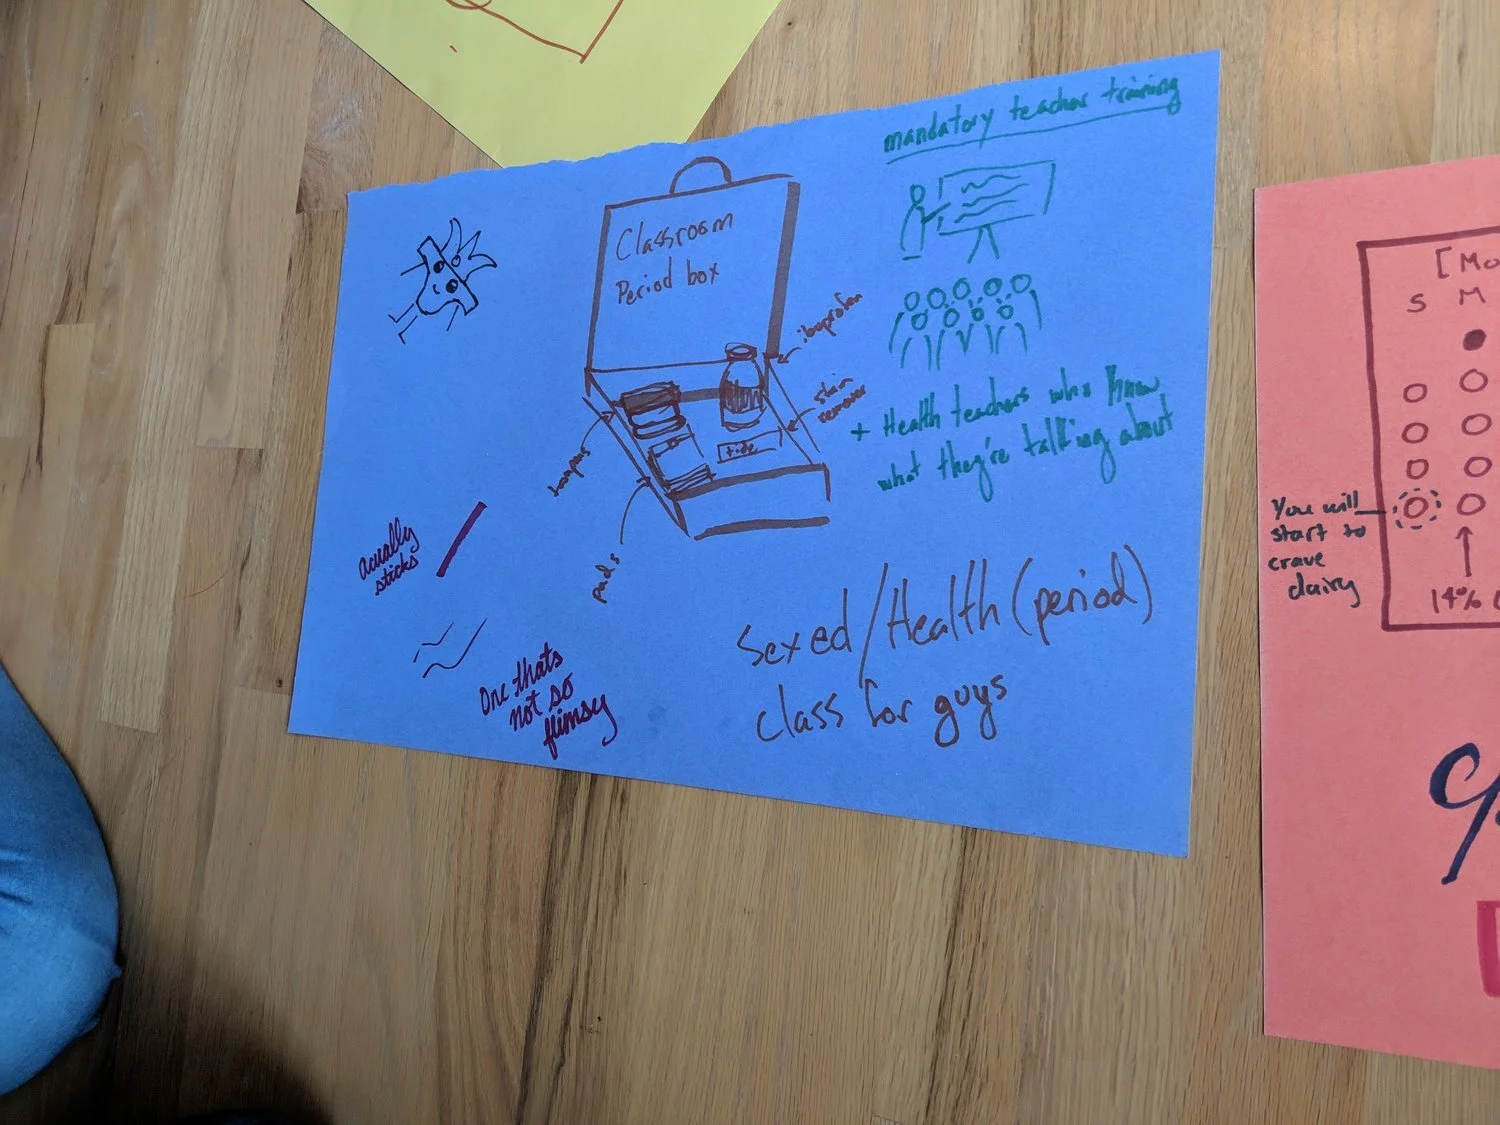 mandatory teacher training
Classroom
Period box
ibuprofen
stain
remover
tide
tampons
pads
+ Health teachers who know
what they're talking about
acually
sticks
One thats
not so
flimsy
Sex ed/Health (period)
class for guys
[Mo
S M
You will
start to
crave
dairy
14%